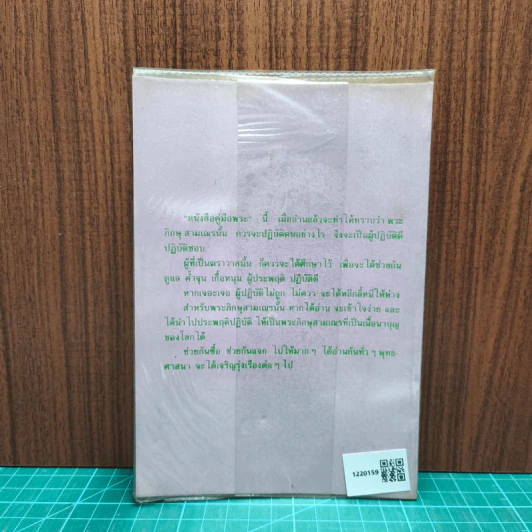 "หนังสือคู่มือพระ" นี้ เมื่ออ่านแล้วจะทำให้ทราบว่า พระ
ภิกษุ สามเณรนั้น ควรจะปฏิบัติตนอย่างไร จึงจะเป็นผู้ปฏิบัติดี
ปฏิบัติชอบ
ผู้ที่เป็นฆราวาสนั้น ก็ควรจะได้ศึกษาไว้ เพื่อจะได้ช่วยกัน
ดูแล ค้ำจุน เกื้อหนุน ผู้ประพฤติ ปฏิบัติดี
หากเจอะเจอ ผู้ปฏิบัติไม่ถูก ไม่ควร จะได้หลีกลี้หนีให้ห่าง
สำหรับพระภิกษุสามเณรนั้น หากได้อ่าน จะเข้าใจง่าย และ
ได้นำไปประพฤติปฏิบัติ ให้เป็นพระภิกษุสามเณรที่เป็นเนื้อนาบุญ
ของโลกได้
ช่วยกันซื้อ ช่วยกันแจก ไปให้มาก ๆ ได้อ่านกันทั่ว ๆ พุทธ-
ศาสนา จะได้เจริญรุ่งเรืองต่อ ๆ ไป
1220159